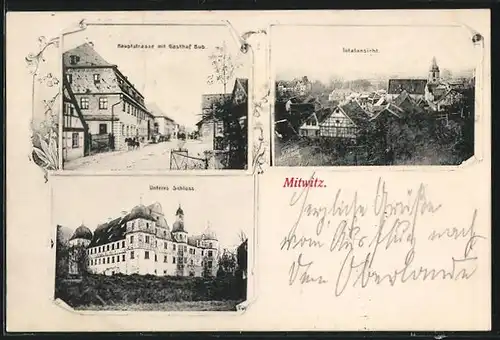 Hauptstrasse mit Gasthof Bub.
Totalansicht.
Unteres Schloss
Mitwitz.
Herzliche Grüße
vom Ausflug nach
dem Oberlande